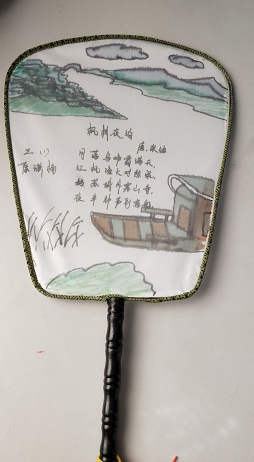 枫桥夜泊
唐 张继
月落乌啼霜满天
江枫渔火对愁眠
姑苏城外寒山寺
夜半钟声到客船
三(1)